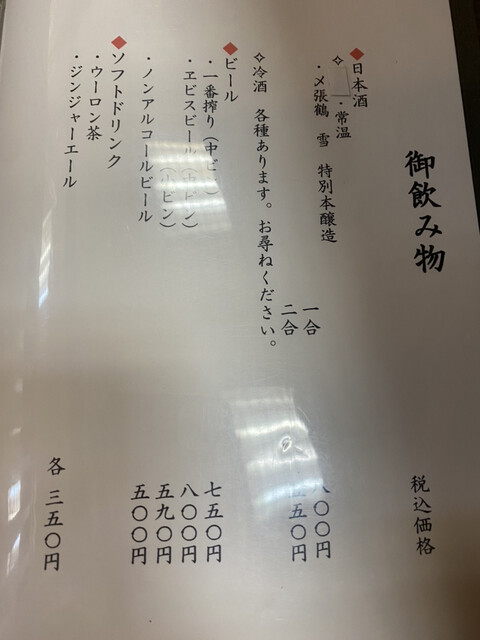 御飲み物
税込価格
◆日本酒
✧ ・常温
・〆張鶴 雪 特別本醸造
一合 八〇〇円
二合 五〇円
✧冷酒 各種あります。お尋ねください。
◆ビール
・一番搾り(中ビ 七五〇円
・ヱビスビール(中ビン) 八〇〇円
(小ビン) 五九〇円
・ノンアルコールビール 五〇〇円
◆ソフトドリンク
・ウーロン茶
・ジンジャーエール
各 三五〇円